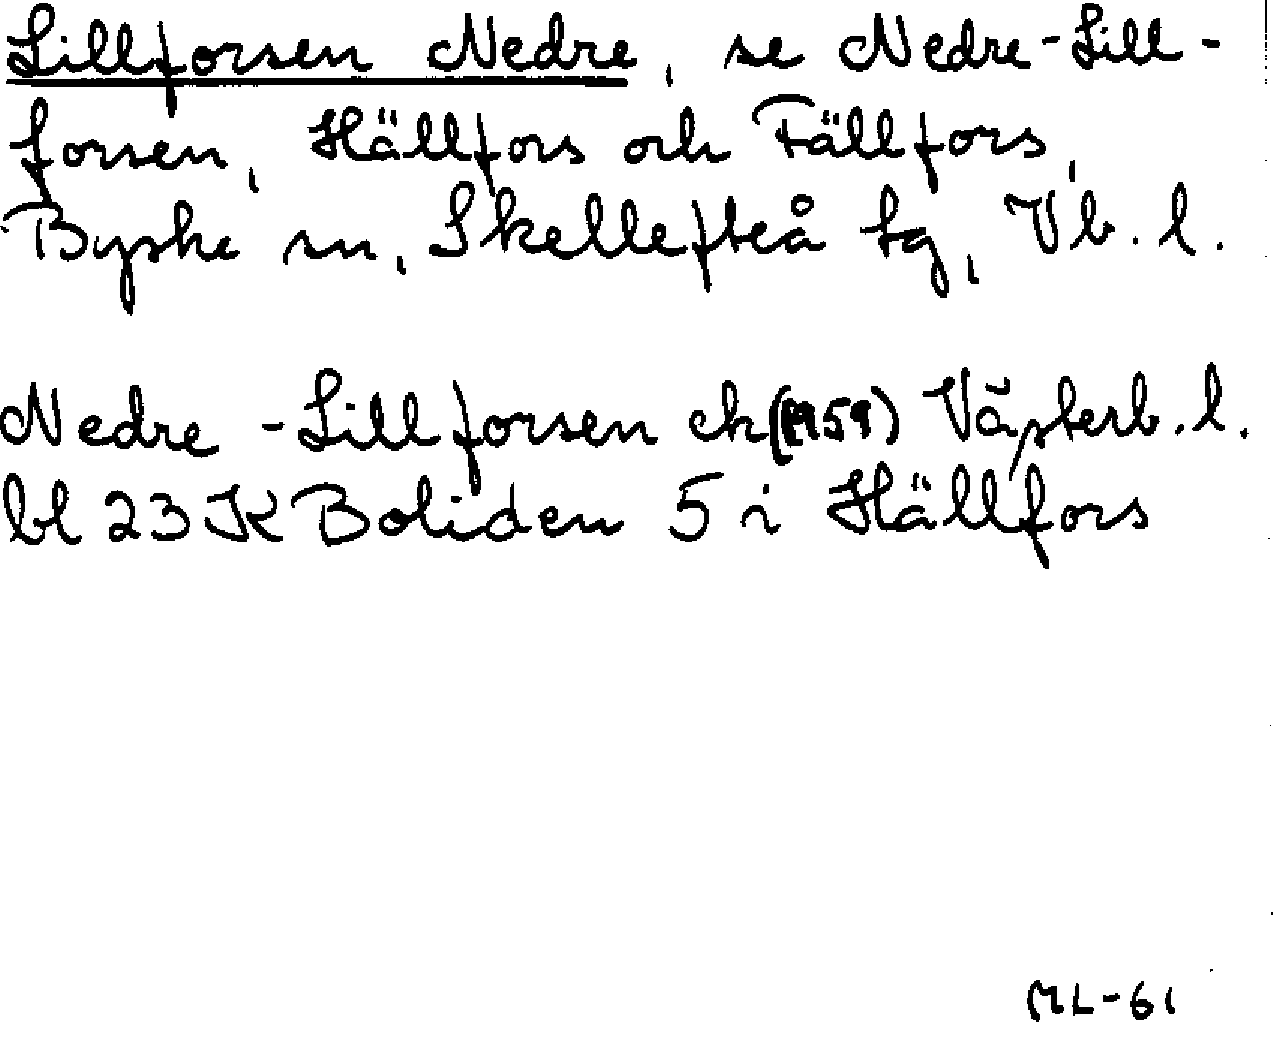 Lillforsen Nedre, se Nedre-Lill-
forsen, Hällfors och Fällfors,
Byske sn, Skellefteå tg, Vb. l.
Nedre-Lillforsen ek (1959) Västerb. l.
bl 23 K Boliden 5 i Hällfors
ML-61